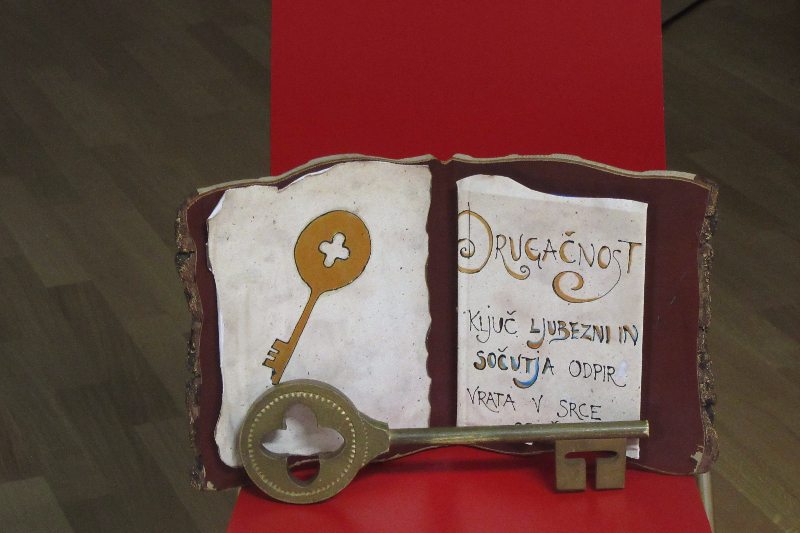 DRUGAČNOST
KLJUČ LJUBEZNI IN
SOČUTJA ODPIRA
VRATA V SRCE